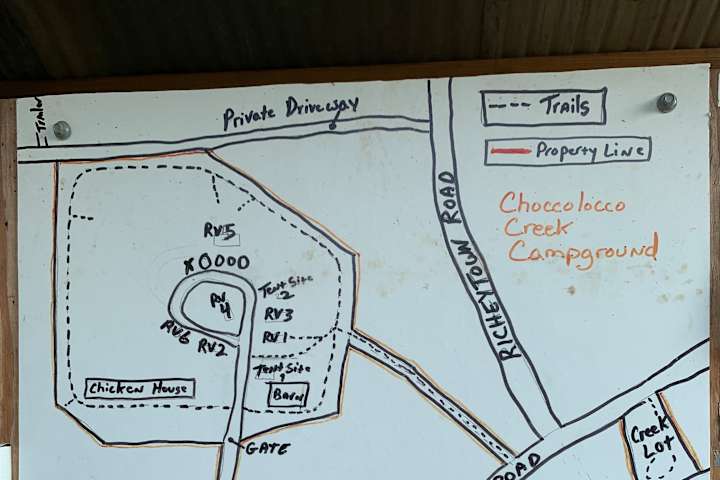 Trailer
Private Driveway
Trails
Property Line
Choccolocco
Creek
Campground
RICHEYTOWN ROAD
RV5
X OOOO
Tent Site
2
RV
4
RV3
RV6
RV2
RV1
Tent Site
Chicken House
Barn
GATE
ROAD
Creek
Lot